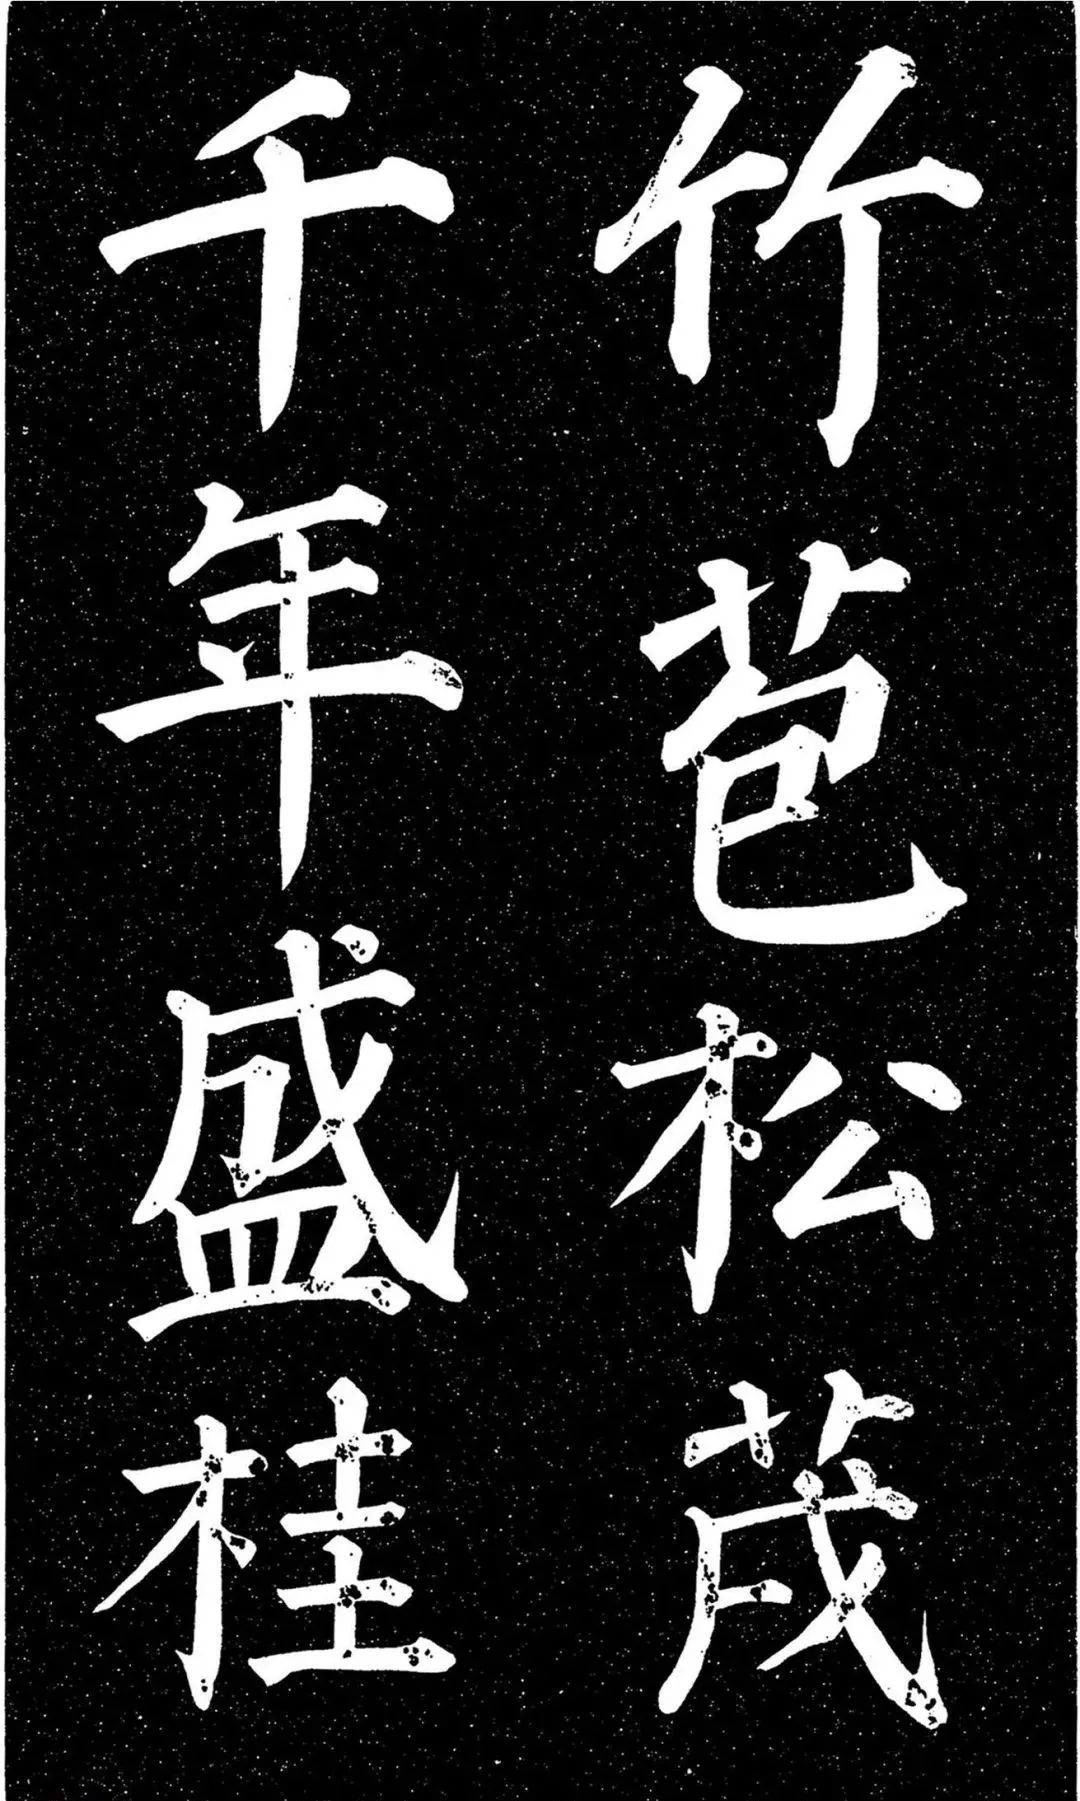 竹苞松茂
千年盛桂